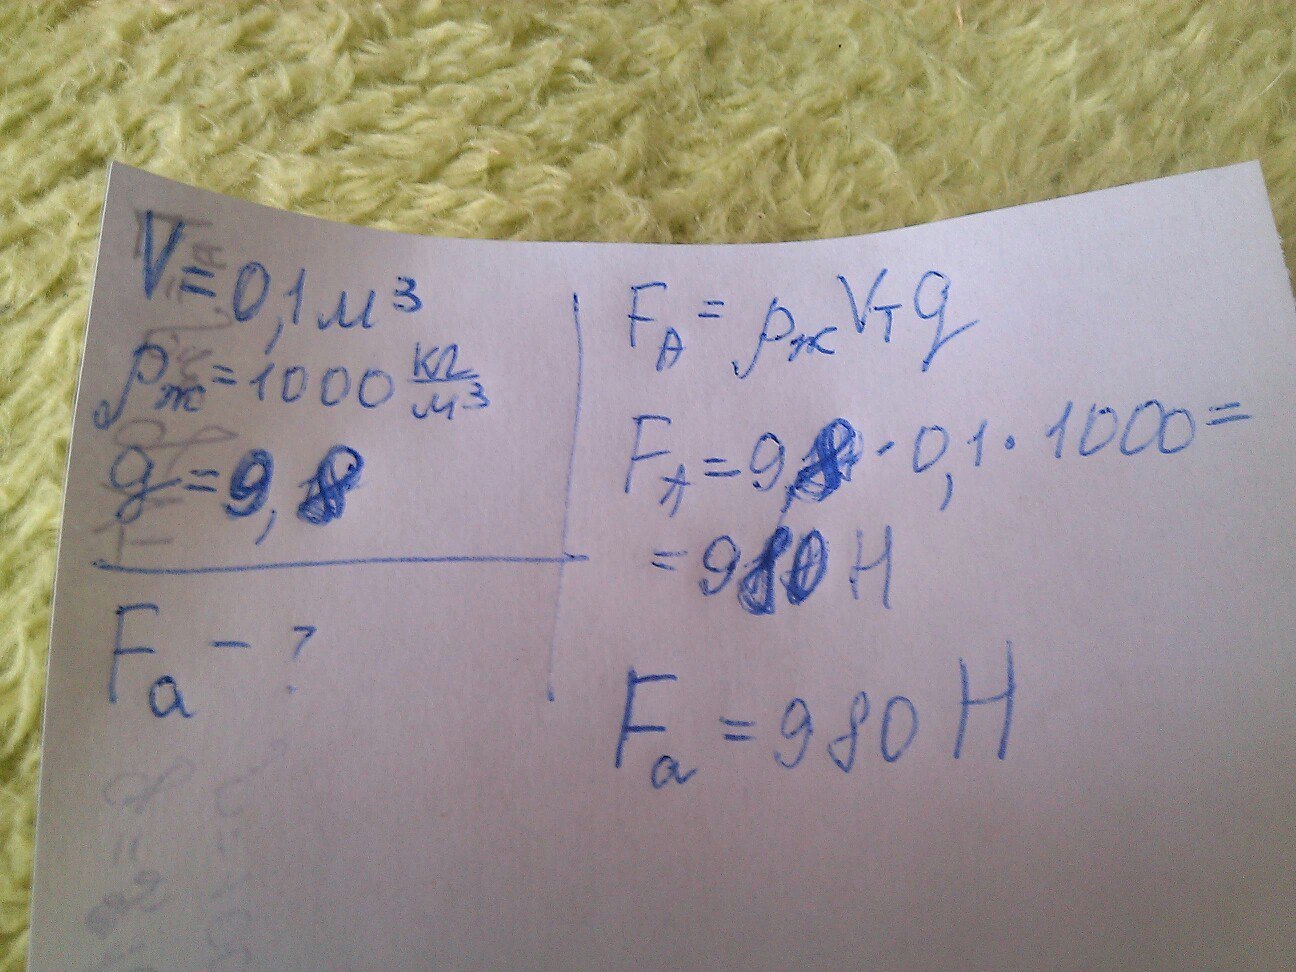 V = 0,1 м³
ρж = 1000 кг/м³
g = 9,8
Fa - ?
FA = ρж Vт g
FA = 9,8 · 0,1 · 1000 =
= 980 Н
Fa = 980 Н